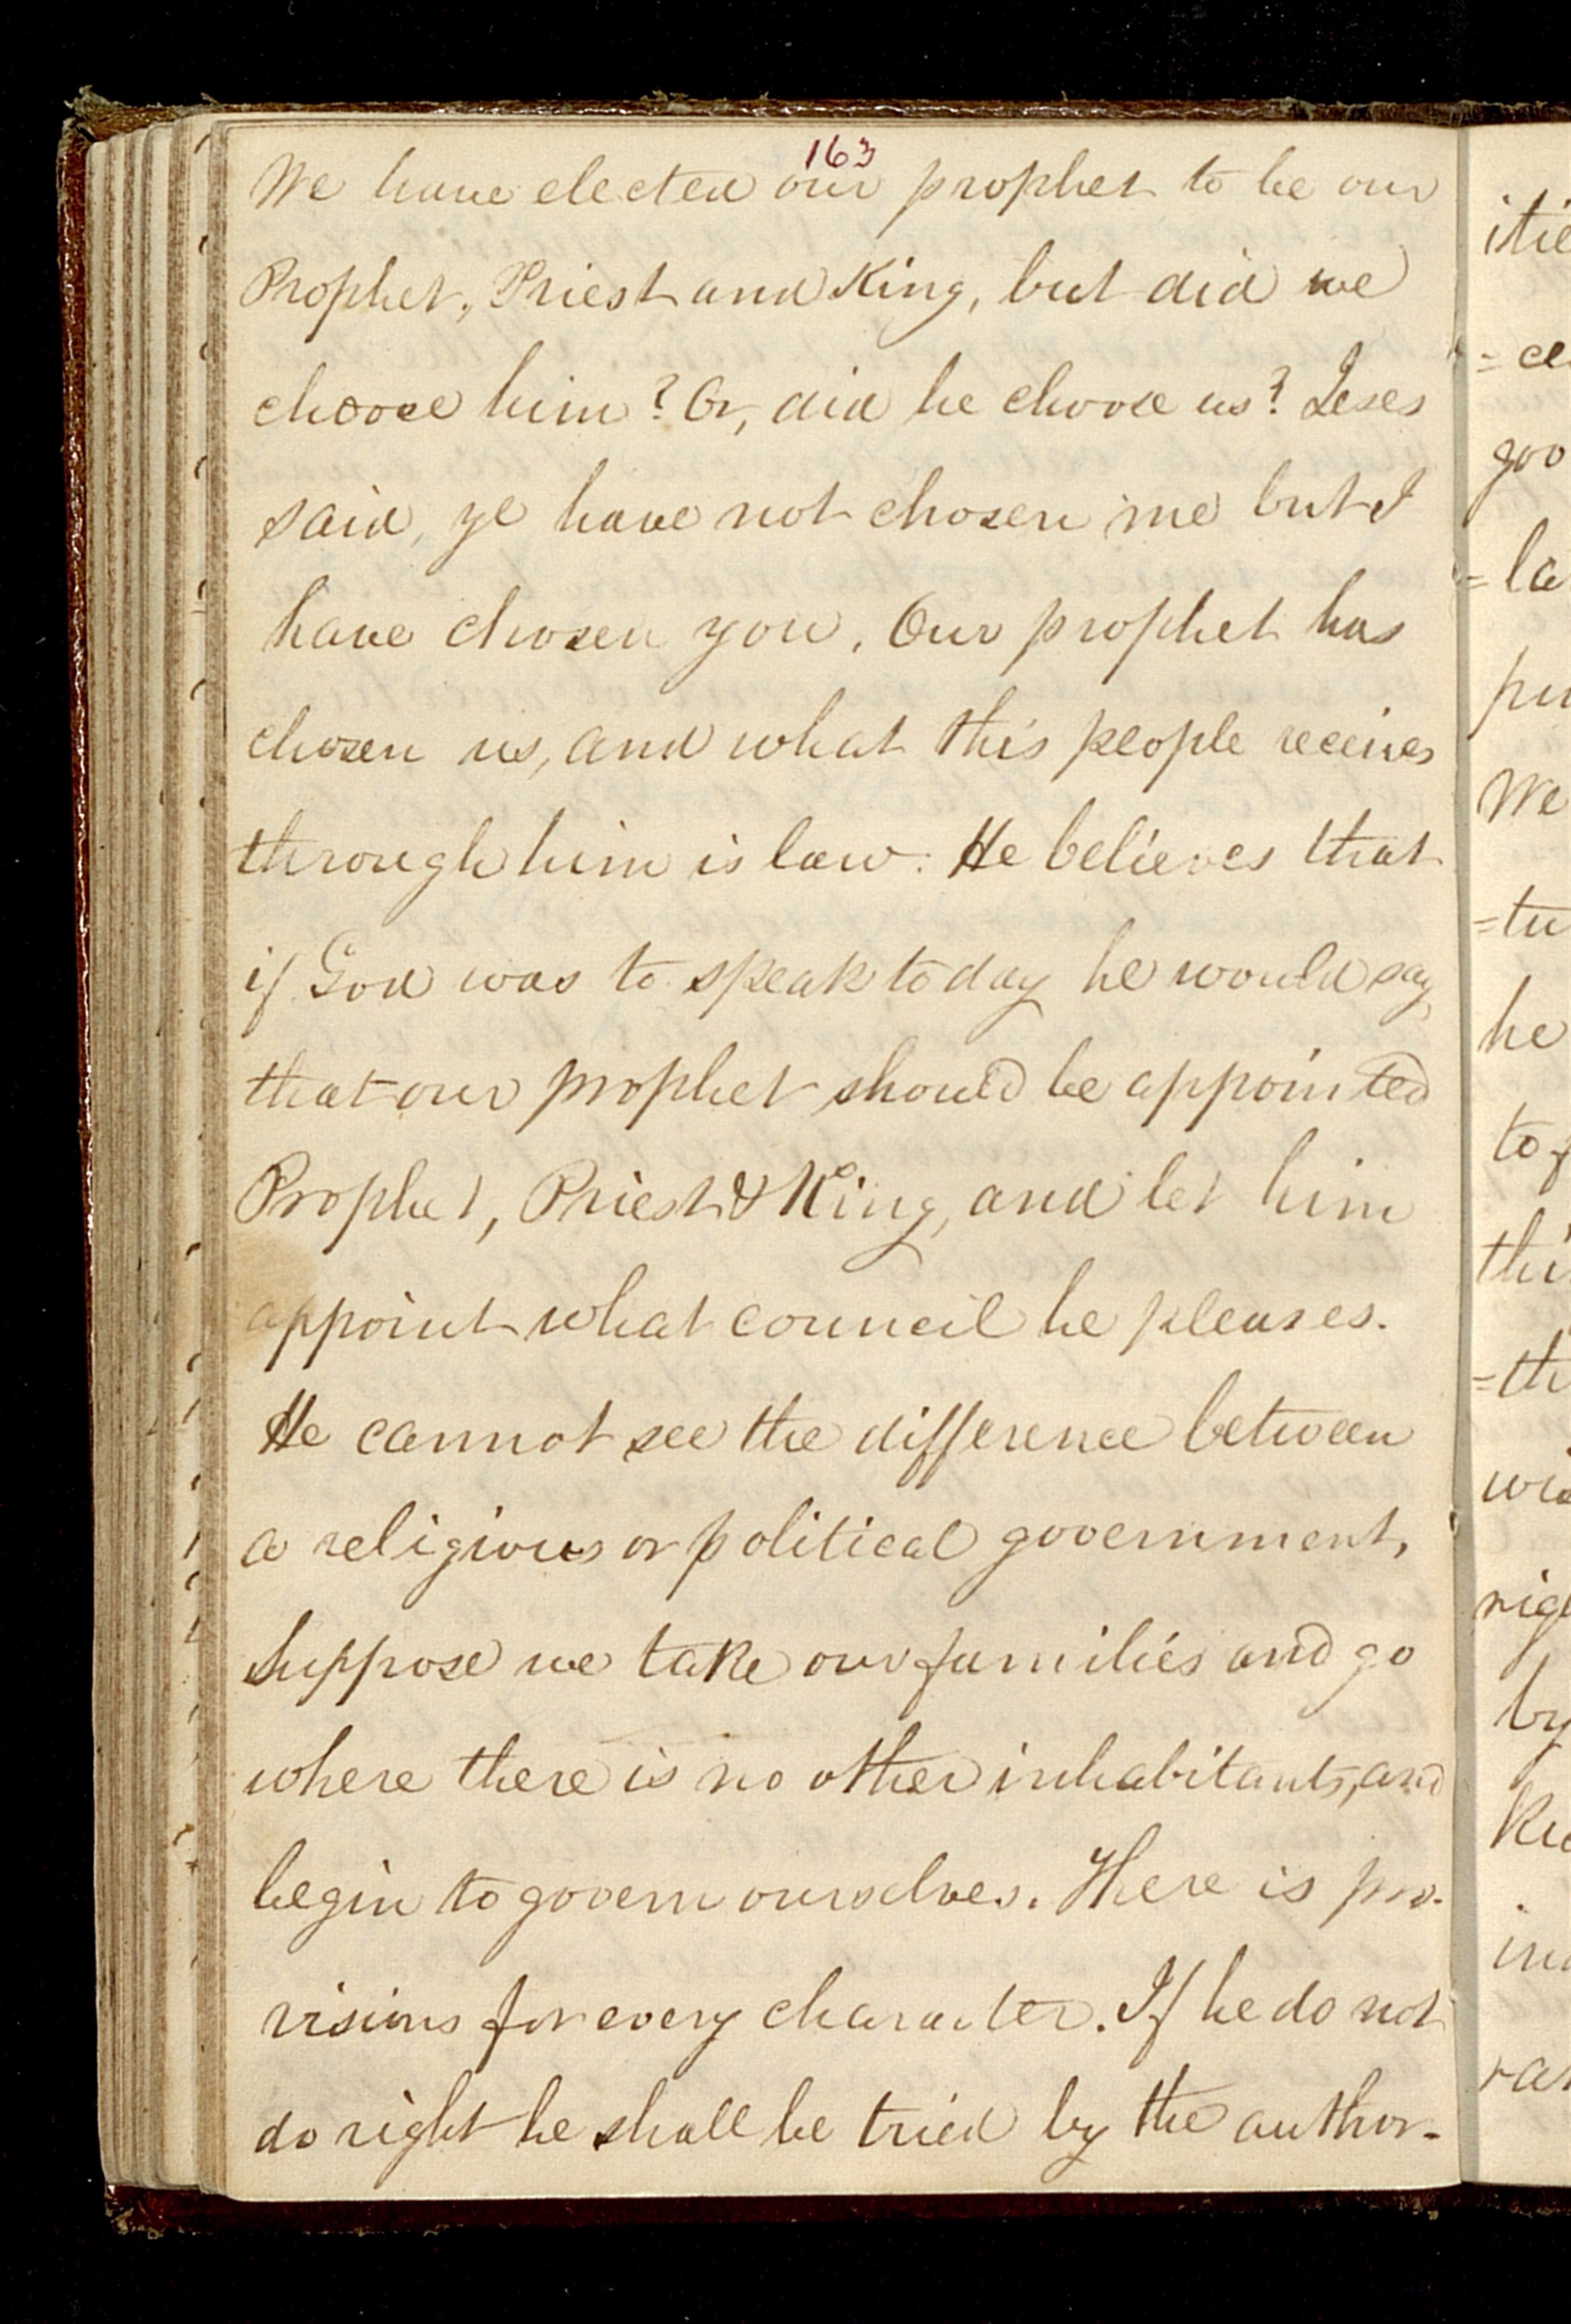 163
We have elected our prophet to be our
Prophet, Priest and King, but did we
choose him? Or, did he choose us? Jeses
said, ye have not chosen me but I
have chosen you. Our prophet has
chosen us, and what this people receives
through him is law. He believes that
if God was to speak to day he would say,
that our prophet should be appointed
Prophet, Priest & King, and let him
appoint what council he pleases.
He cannot see the difference between
a religious or political government,
Suppose we take our families and go
where there is no other inhabitants, and
begin to govern ourselves. There is pro-
visions for every character. If he do not
do right he shall be tried by the author-
itie
= ce
goo
= la
pu
We
= tu
he
to f
thi
= th
wi
rig
by
ki
in
ra